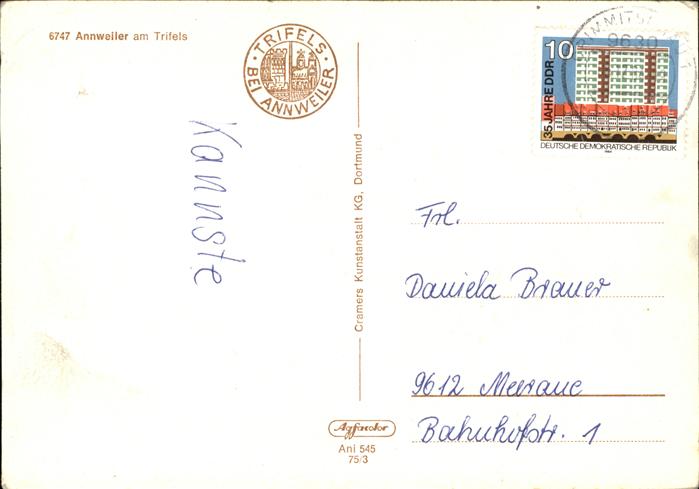 6747 Annweiler am Trifels
· TRIFELS ·
BEI ANNWEILER
Kannste
Cramers Kunstanstalt KG, Dortmund
Agfacolor
Ani 545
75/3
9630
10
35 JAHRE DDR
DEUTSCHE DEMOKRATISCHE REPUBLIK
Frl.
Daniela Brauer
9612 Meerane
Bahnhofstr. 1